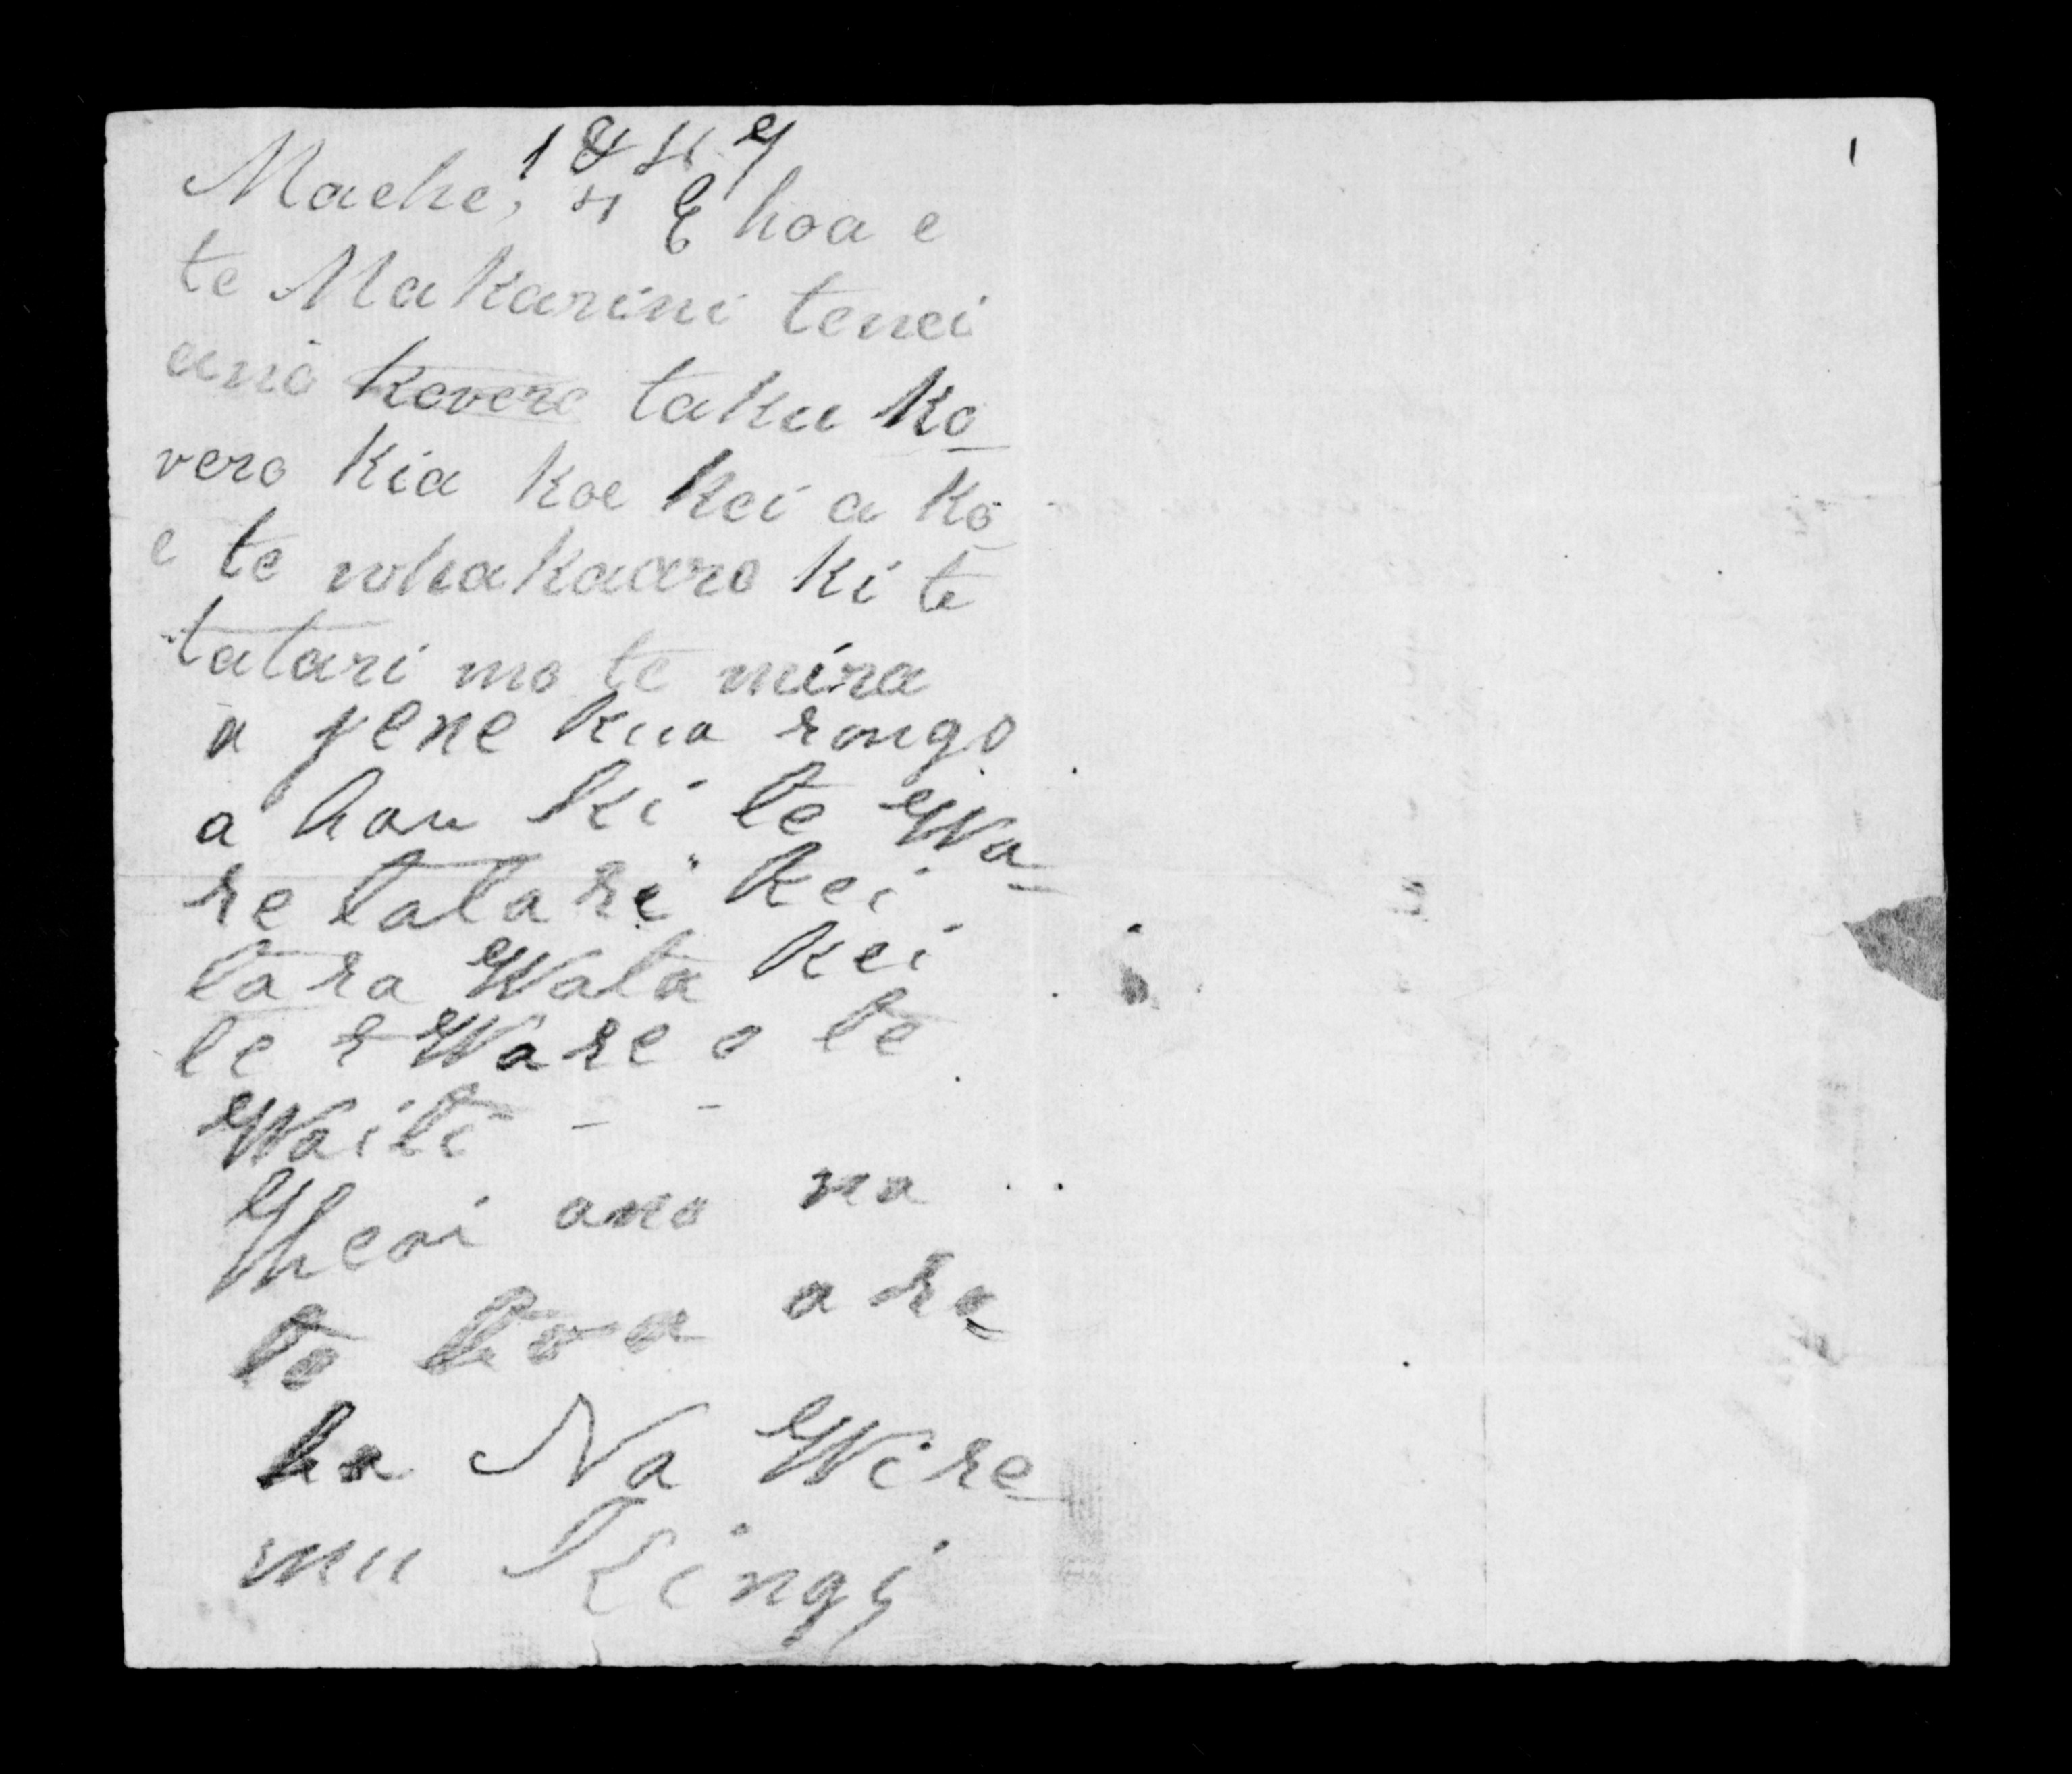 1849
Maehe, 4 E hoa e
te Makarini tenei
ano kovero taku ko-
vero kia koe kei a ko-
e te whakaaro ki te
tatari mo te mira
a pene kua rongo
a hau ki te Wa-
re tatari kei
tara Wata kei
te Ware o te
Waiti - -
heoi ano na
to hoa aro=
ha Na Wire-
mu Kingi
1